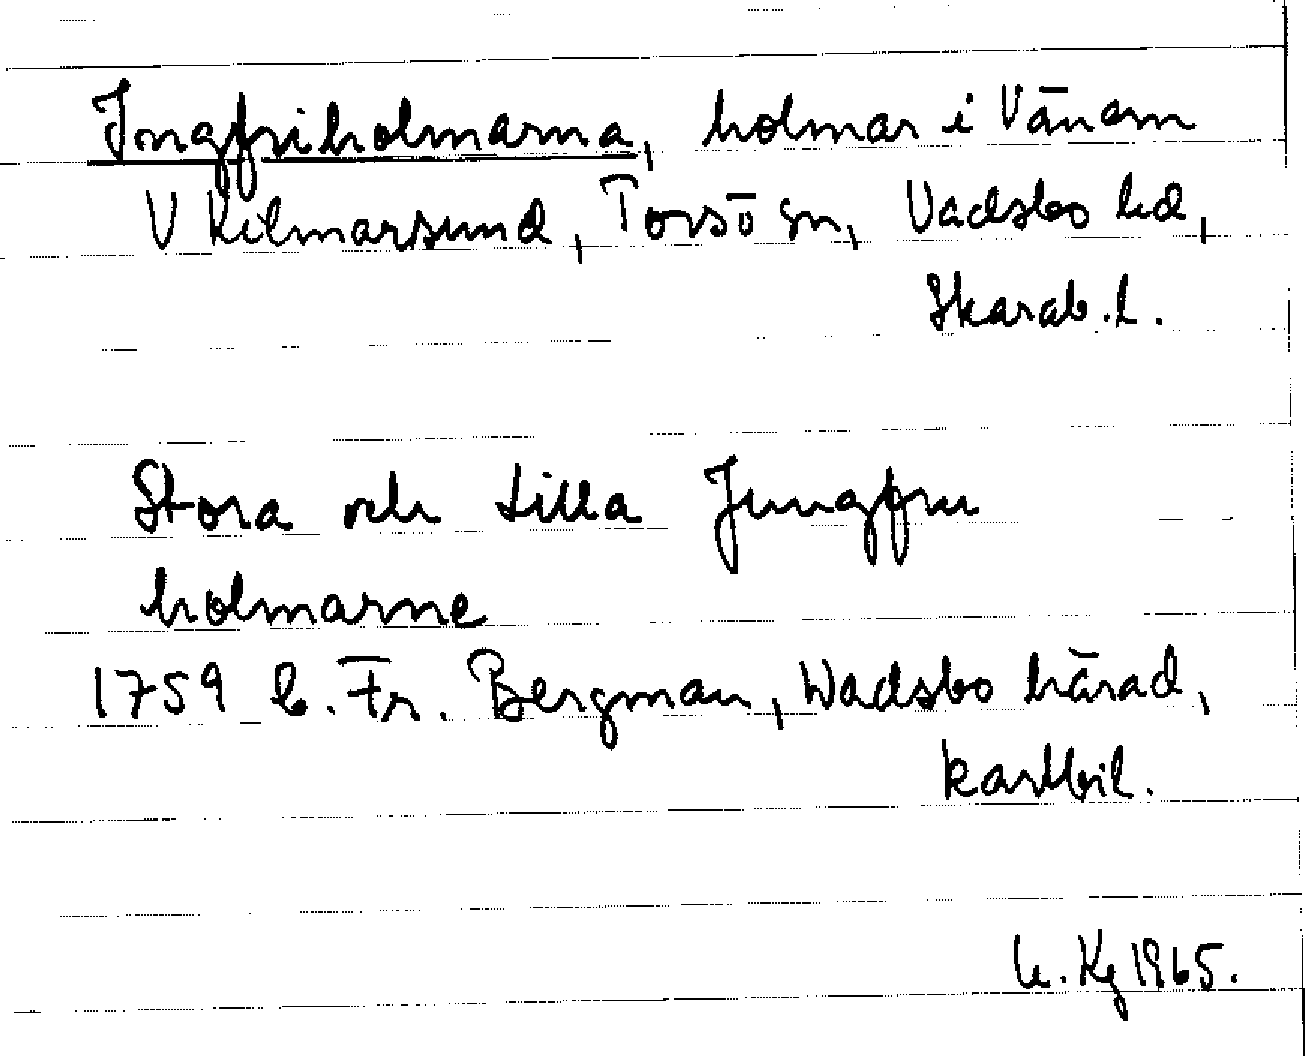 Jngfriholmarna, holmar i Vänern
V Kilmarsund, Torsö sn, Vadsbo hd,
Skarab. l.
Stora och Lilla Jungfru
holmarne
1759 C. Fr. Bergman, Wadsbo härad,
kartbil.
Kg 1965.